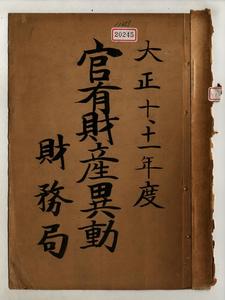 20245
大正十、十一年度
官有財産異動
財務局